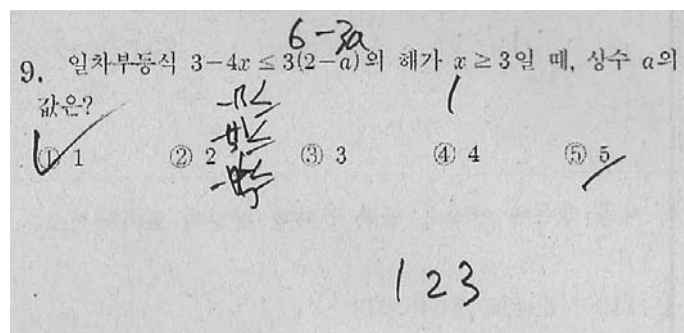 6-3a
9. 일차부등식 3-4x ≤ 3(2-a)의 해가 x ≥ 3일 때, 상수 a의
값은?
① 1 ② 2 ③ 3 ④ 4 ⑤ 5
1 2 3